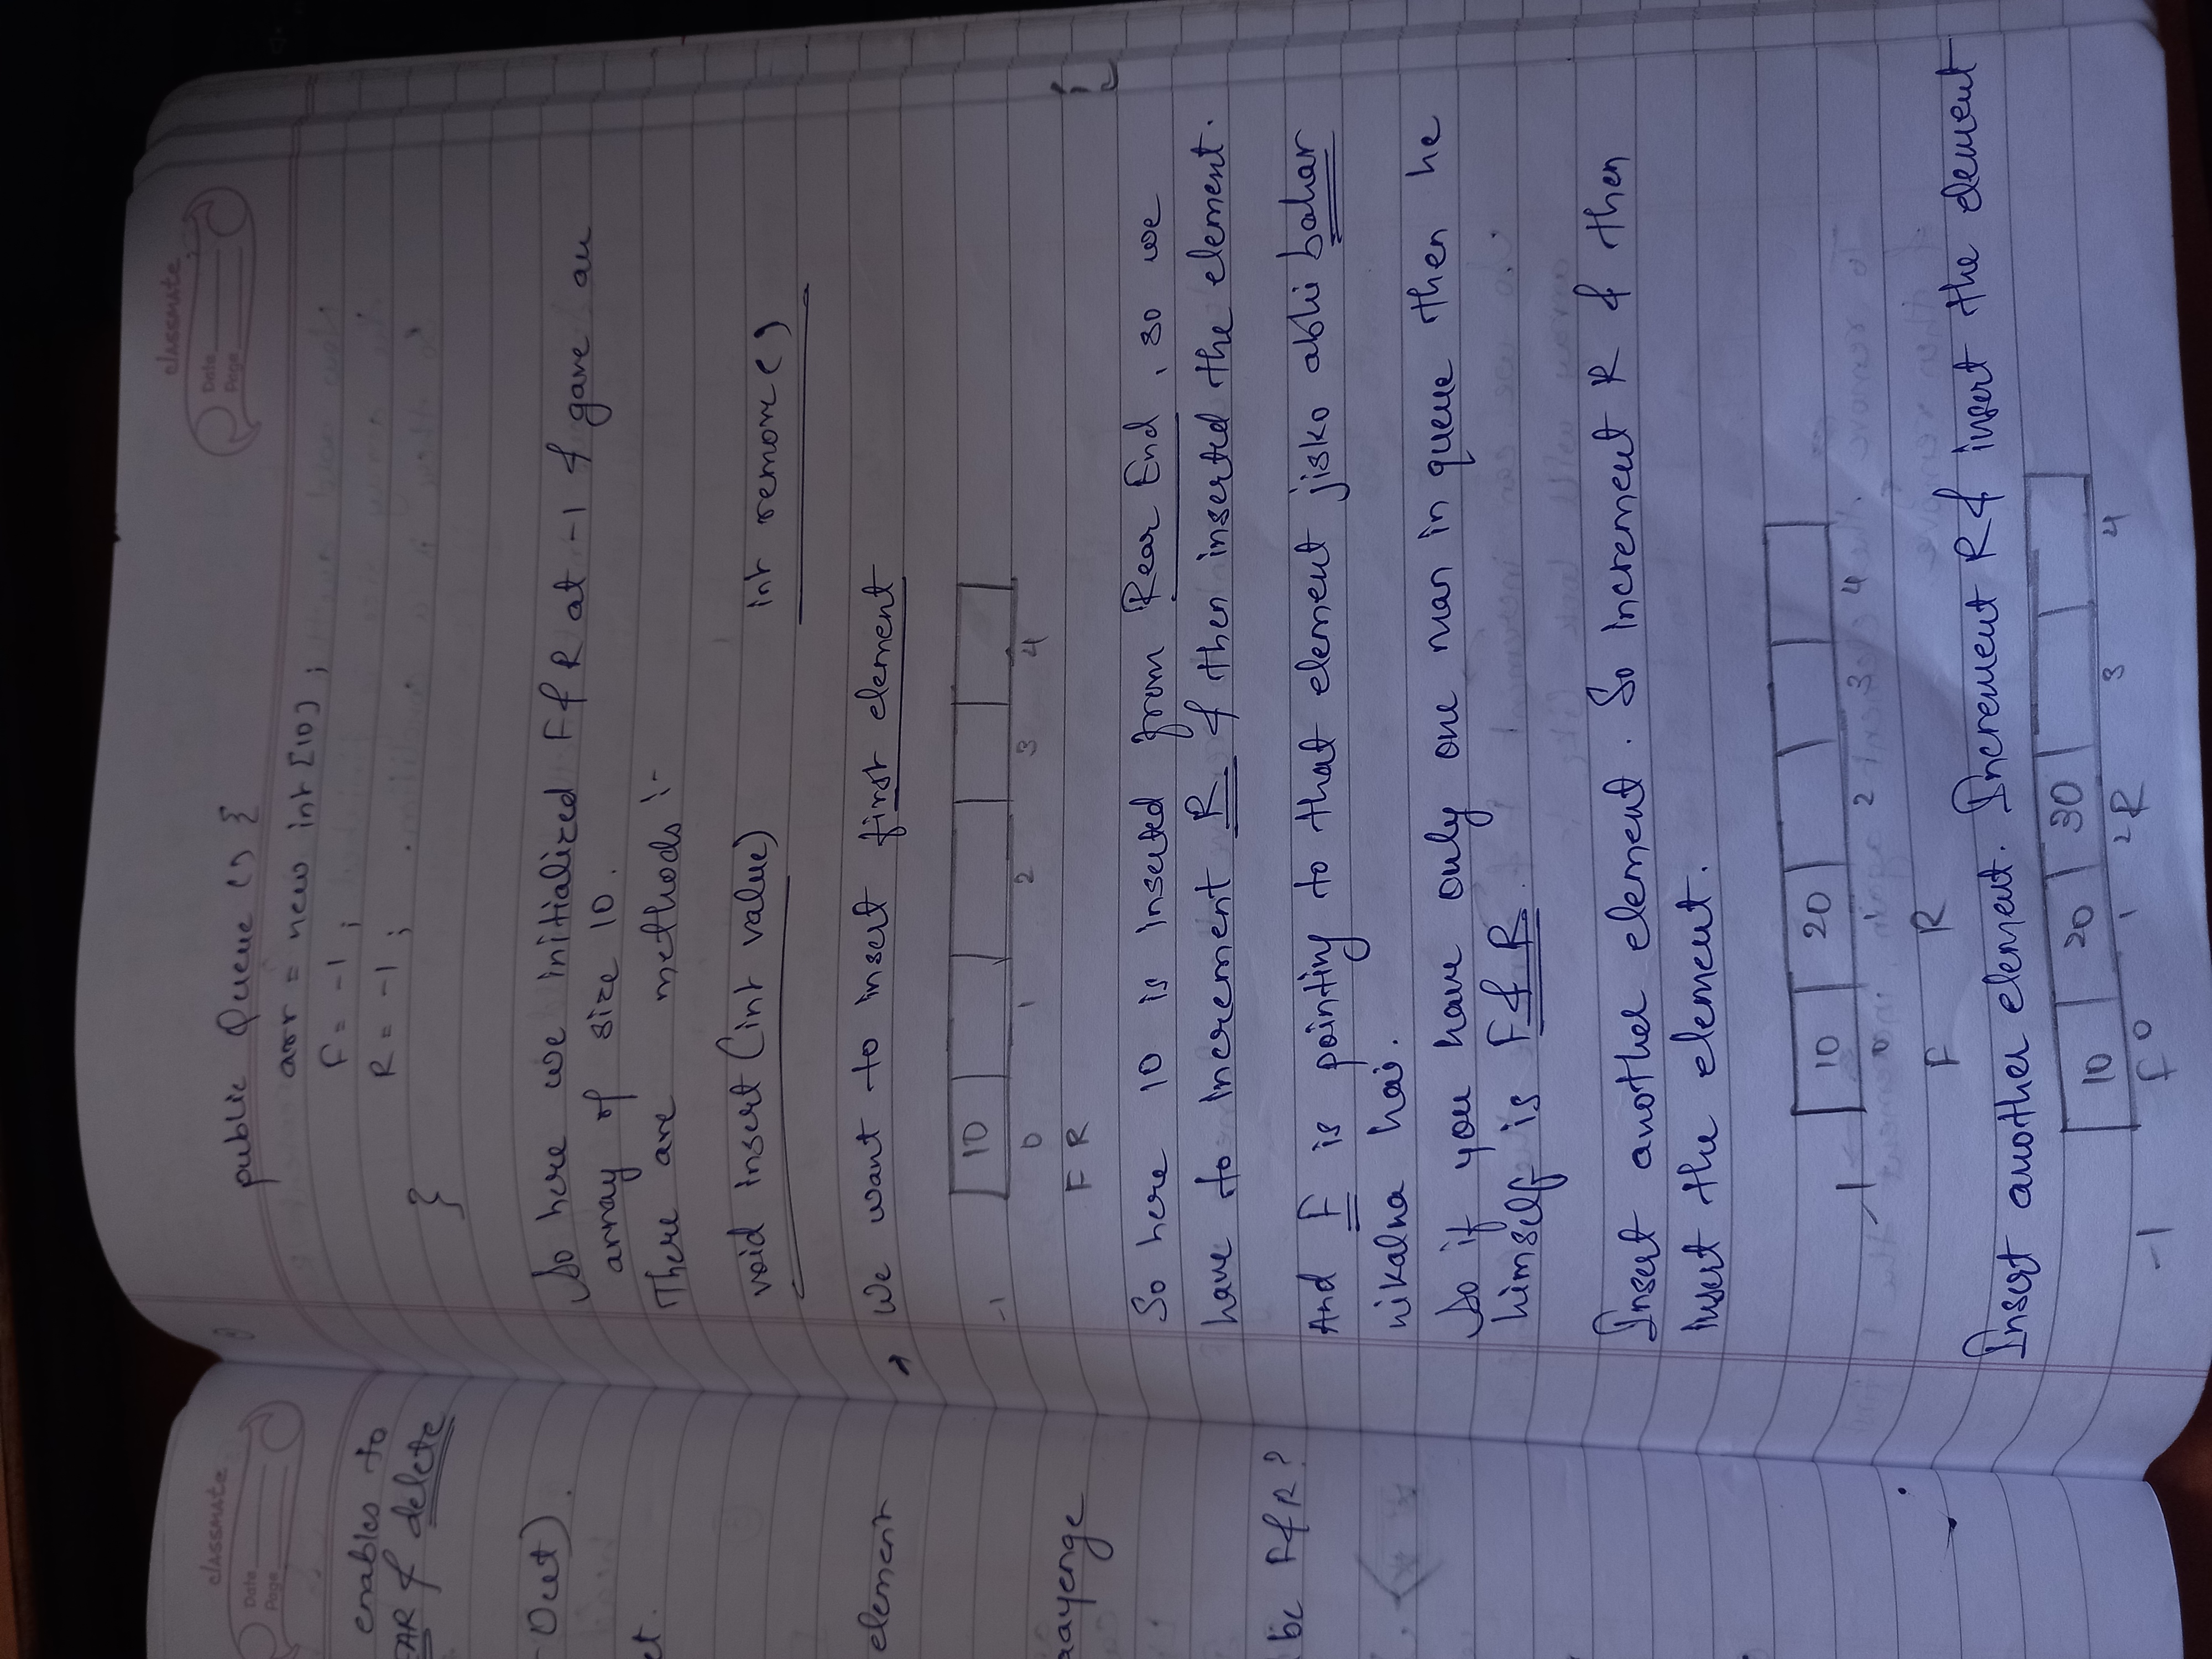 classmate
Date
Page
enables to
EAR & delete
-Out).
et.
element
aayenge
be F & R?
classmate
Date
Page
public Queue () {
arr = new int [10];
F = -1;
R = -1;
}
So here we initialized F & R at -1 & gave an
array of size 10.
There are methods :-
void insert (int value) int remove()
→ We want to insert first element
10
-1
0 1 2 3 4
F R
So here 10 is inserted from Rear End, so we
have to increment R & then inserted the element.
And F is pointing to that element jisko abhi bahar
nikalna hai.
So if you have only one man in queue then he
himself is F & R.
Insert another element. So increment R & then
insert the element.
10 20
-1
0 1 2 3 4
F R
Insert another element. Increment R & insert the element
10 20 30
-1 F 0 1 2 R 3 4